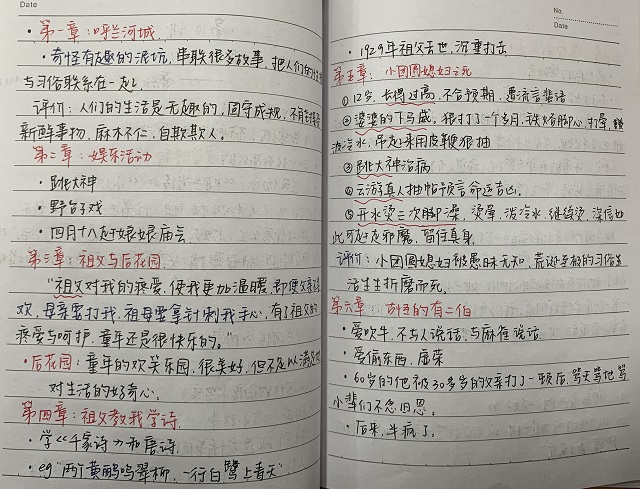 Date
·第一章：呼兰河城.
·奇怪有趣的泥坑，串联很多故事，把人们的
与习俗联系在一起.
评价：人们的生活是无趣的，固守成规，不肯
新鲜事物，麻木不仁，自欺欺人。
第二章：娱乐活动
·跳大神
·野台子戏
·四月十八赶娘娘庙会
第三章：祖父与后花园.
"祖父对我的疼爱，使我更加温暖，即使父亲
欢，母亲要打我，祖母要拿针刺我手心，有了祖父的
疼爱与呵护，童年还是很快乐的。"
·后花园：童年的欢笑乐园，很美好，但不足以满足
对生活的好奇心.
第四章：祖父教我学诗.
·学《千家诗》和唐诗.
·eg"两个黄鹂鸣翠柳，一行白鹭上青天"
No.
Date
·1929年祖父去世，沉重打击
第五章：小团圆媳妇之死
①12岁，长得过高，不合预期，遭流言蜚语
②婆婆的下马威，狠打了一个多月，铁烙脚心，打晕，
泼冷水，吊起来用皮鞭狠抽
③跳大神治病
④云游真人抽帖预言命运吉凶.
⑤开水烫三次脚澡，烫晕，泼冷水，继续烫，深信如
此可赶走邪魔，留住真身.
评价：小团圆媳妇被愚昧无知，荒诞至极的习俗生
活生生折磨而死.
第六章：古怪的有二伯
·爱吹牛，不与人说话，与麻雀说话
·爱偷东西，虚荣
·60岁的他被30多岁的父亲打了一顿后，骂天骂地骂
小辈们不念旧恩.
·后来，半疯了.